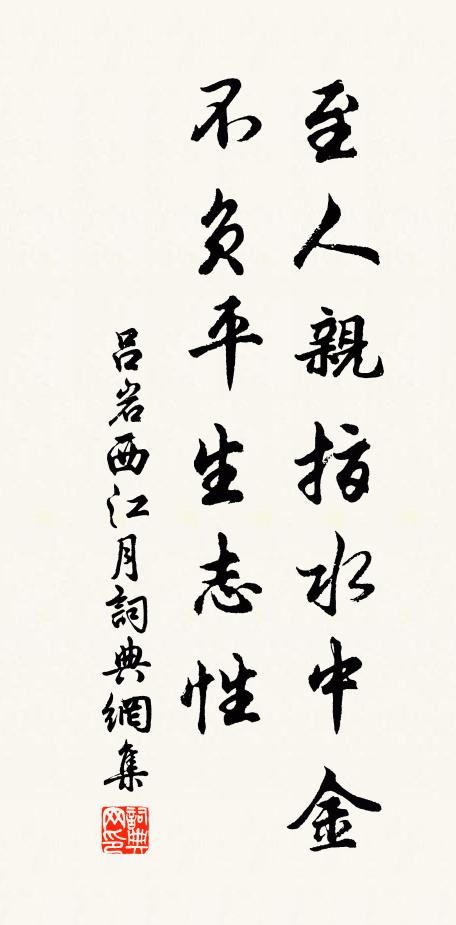 至人親指水中金
不負平生志性
吕岩西江月詞典網集
詞典网印